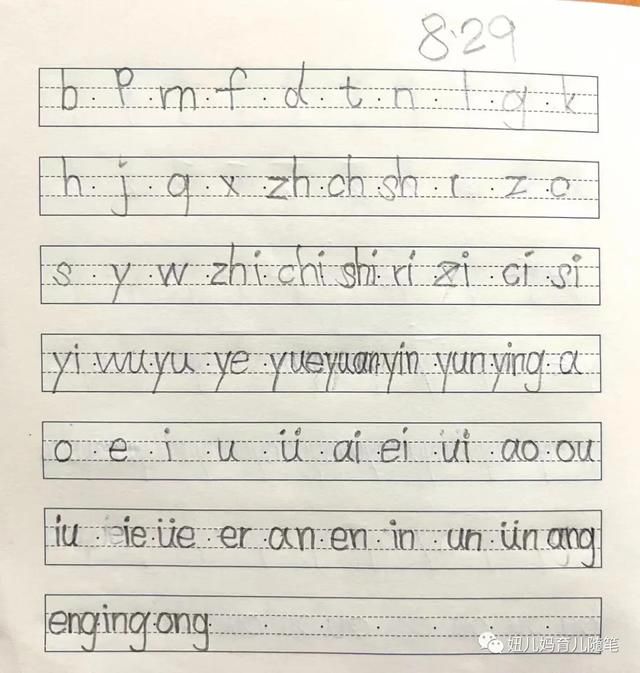 8.29
b p m f d t n l g k
h j q x zh ch sh r z c
s y w zhi chi shi ri zi ci si
yi wu yu ye yue yuan yin yun ying a
o e i u ü ai ei ui ao ou
iu ie üe er an en in un ün ang
eng ing ong
妞儿妈育儿随笔